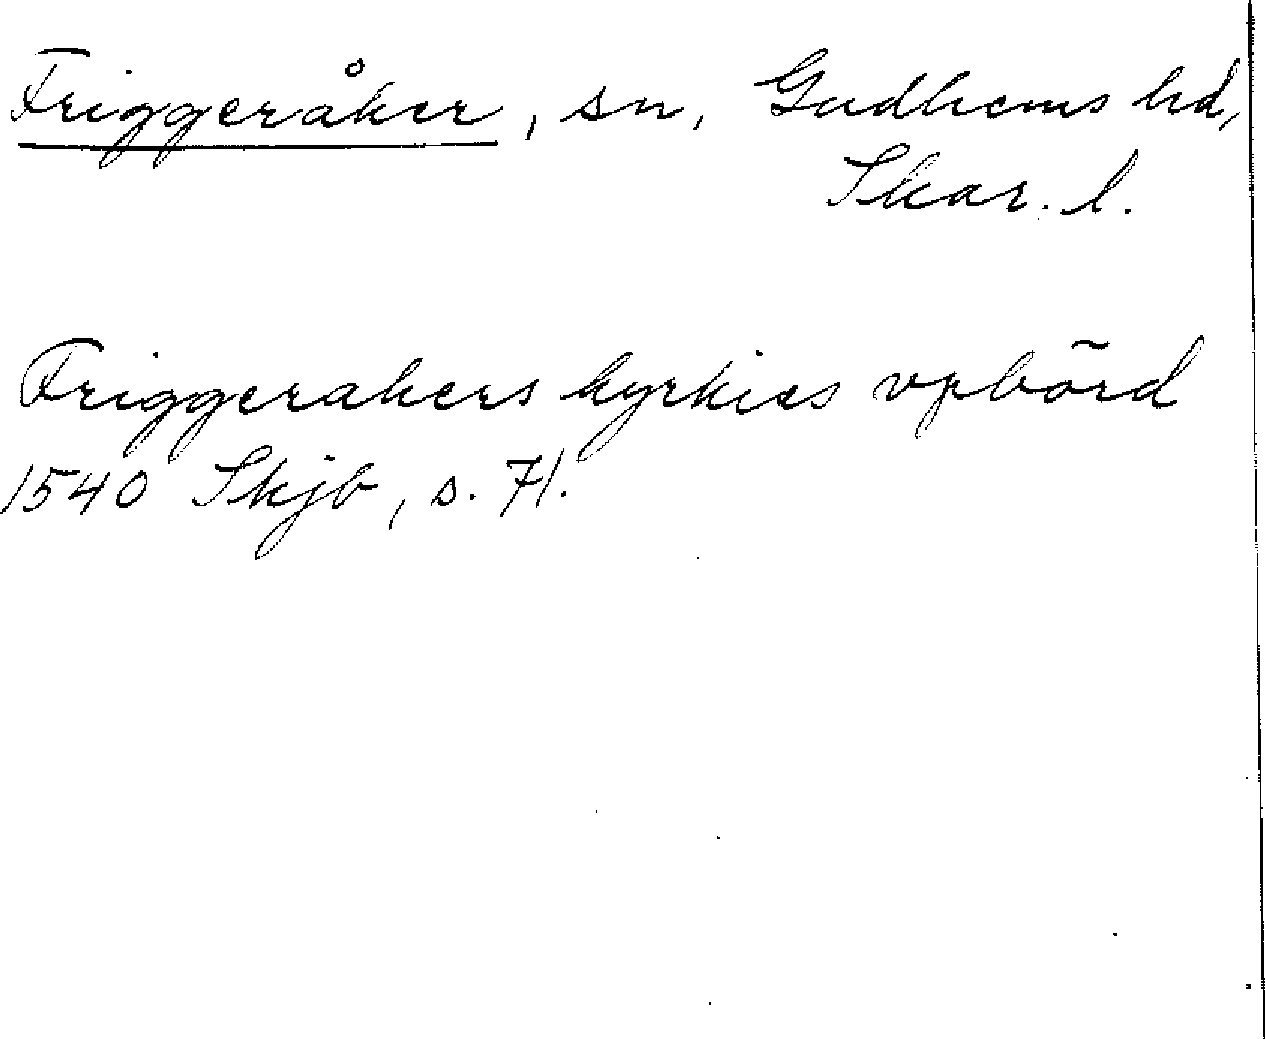 Friggeråker, sn, Gudhems hd,
Skar. l.
Friggerakers kyrkies vpbõrd
1540 Skjb, s. 71.